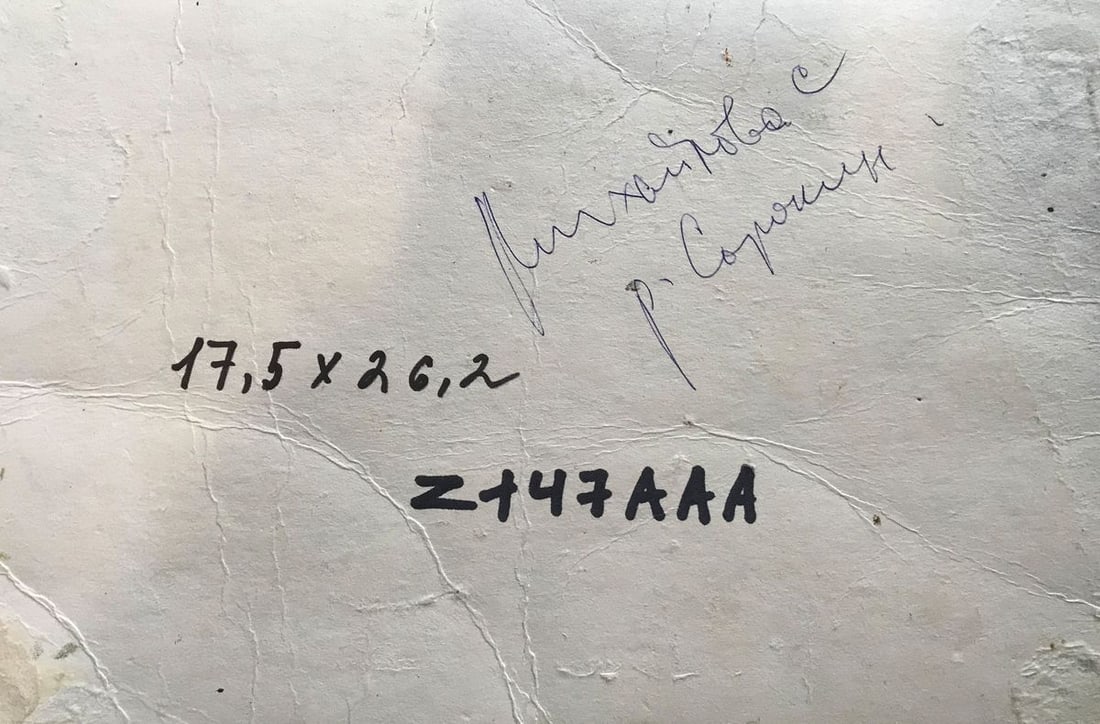 Михайлова С
р. Сорокин
17,5 x 26,2
Z+47AAA